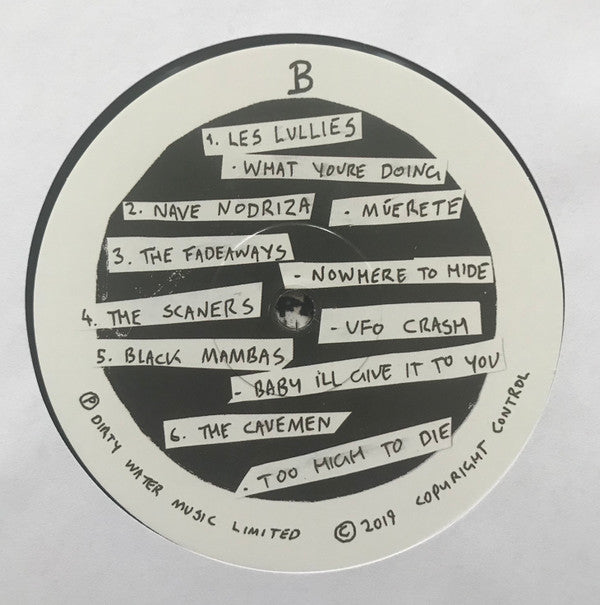 B
1. LES LULLIES
- WHAT YOURE DOING
2. NAVE NODRIZA - MÚERETE
3. THE FADEAWAYS
- NOWHERE TO HIDE
4. THE SCANERS
- UFO CRASH
5. BLACK MAMBAS
- BABY ILL GIVE IT TO YOU
6. THE CAVEMEN
- TOO HIGH TO DIE
Ⓟ DIRTY WATER MUSIC LIMITED © 2019 COPYRIGHT CONTROL